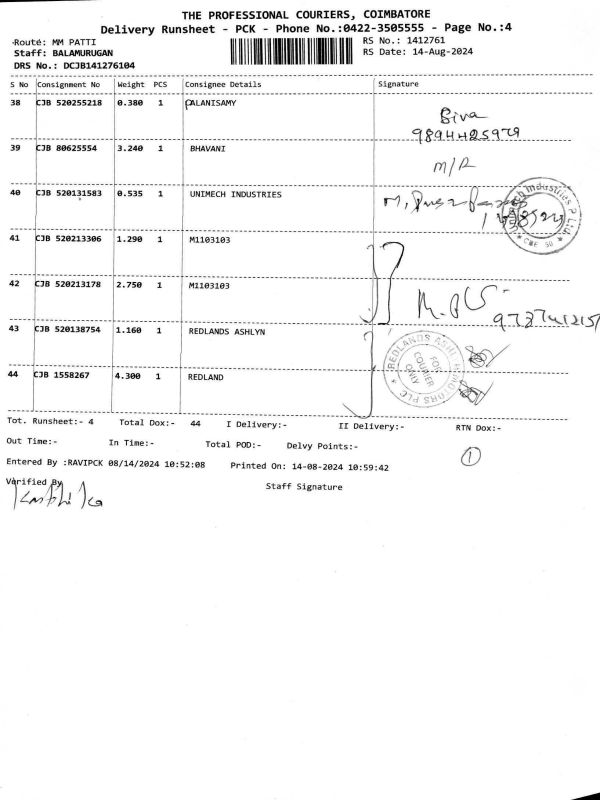 THE PROFESSIONAL COURIERS, COIMBATORE
Delivery Runsheet - PCK - Phone No.:0422-3505555 - Page No.:4
Route: MM PATTI RS No.: 1412761
Staff: BALAMURUGAN RS Date: 14-Aug-2024
DRS No.: DCJB141276104
S No Consignment No Weight PCS Consignee Details Signature
38 CJB 520255218 0.380 1 PALANISAMY
Siva
9894425979
39 CJB 80625554 3.240 1 BHAVANI
M/R
40 CJB 520131583 0.535 1 UNIMECH INDUSTRIES
41 CJB 520213306 1.290 1 M1103103
42 CJB 520213178 2.750 1 M1103103
43 CJB 520138754 1.160 1 REDLANDS ASHLYN
REDLANDS ASHLYN MOTORS PLC
FOR
COURIER
ONLY
44 CJB 1558267 4.300 1 REDLAND
Tot. Runsheet:- 4 Total Dox:- 44 I Delivery:- II Delivery:- RTN Dox:-
Out Time:- In Time:- Total POD:- Delvy Points:-
1
Entered By :RAVIPCK 08/14/2024 10:52:08 Printed On: 14-08-2024 10:59:42
Verified By Staff Signature